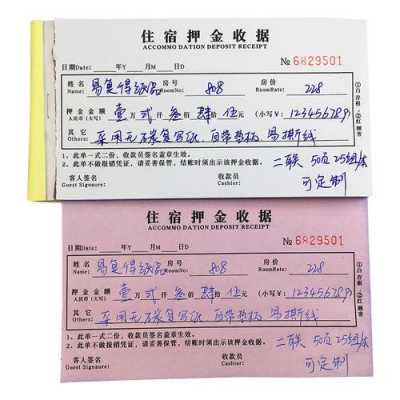 住宿押金收据
ACCOMMO DATION DEPOSIT RECEIPT
日期Date: 年Y 月M 日D № 6829501
姓名 Name 易复得纸品 房号 808 房价 RoomRate: 228
押金金额 人民币(大写) 壹万弍仟叁佰肆拾伍元 (小写)¥: 123456789
其它 Others: 采用无碳复写纸,自带垫板 易撕线
1、此单一式二份,收款员签名盖章生效。
2、此单不做报销凭证,请妥善保管。结账时须出示该押金收据。
客人签名 Guest Signaure: 收款员 Cashier:
二联 50页 25组/本
可定制
①白存根 ②红顾客
住宿押金收据
ACCOMMO DATION DEPOSIT RECEIPT
日期Date: 年Y 月M 日D № 6829501
姓名 Name 易复得纸品 房号 808 房价 RoomRate: 228
押金金额 人民币(大写) 壹万弍仟叁佰肆拾伍元 (小写)¥: 123456789
其它 Others: 采用无碳复写纸,自带垫板 易撕线
1、此单一式二份,收款员签名盖章生效。
2、此单不做报销凭证,请妥善保管。结账时须出示该押金收据。
客人签名 Guest Signaure: 收款员 Cashier:
二联 50页 25组/本
可定制
①白存根 ②红顾客